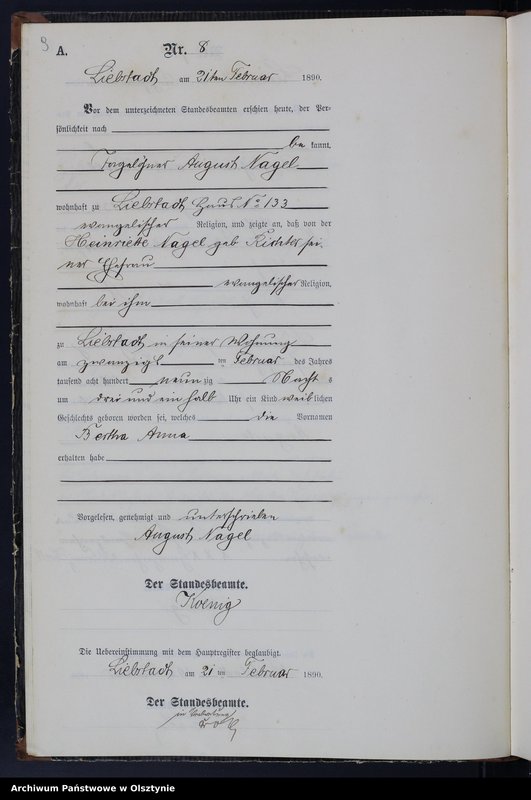 9
A.
Nr. 8
Liebstadt am 21ten Februar 1890.
Vor dem unterzeichneten Standesbeamten erschien heute, der Per-
sönlichkeit nach
be kannt,
August Nagel
wohnhaft zu Liebstadt Haus No 133
evangelischer Religion, und zeigte an, daß von der
Heinriette Nagel geb Richter sei-
ner Ehefrau
evangelischer Religion,
wohnhaft bei ihm
zu Liebstadt in seiner Wohnung
am zwanzigt ten Februar des Jahres
tausend acht hundert neun zig Nacht s
um drei und ein halb Uhr ein Kind weib lichen
Geschlechts geboren worden sei, welches die Vornamen
Bertha Anna
erhalten habe
Vorgelesen, genehmigt und unterschrieben
August Nagel
Der Standesbeamte.
Koenig
Die Uebereinstimmung mit dem Hauptregister beglaubigt.
Liebstadt am 21 ten Februar 1890.
Der Standesbeamte.
in Vertretung
Archiwum Państwowe w Olsztynie